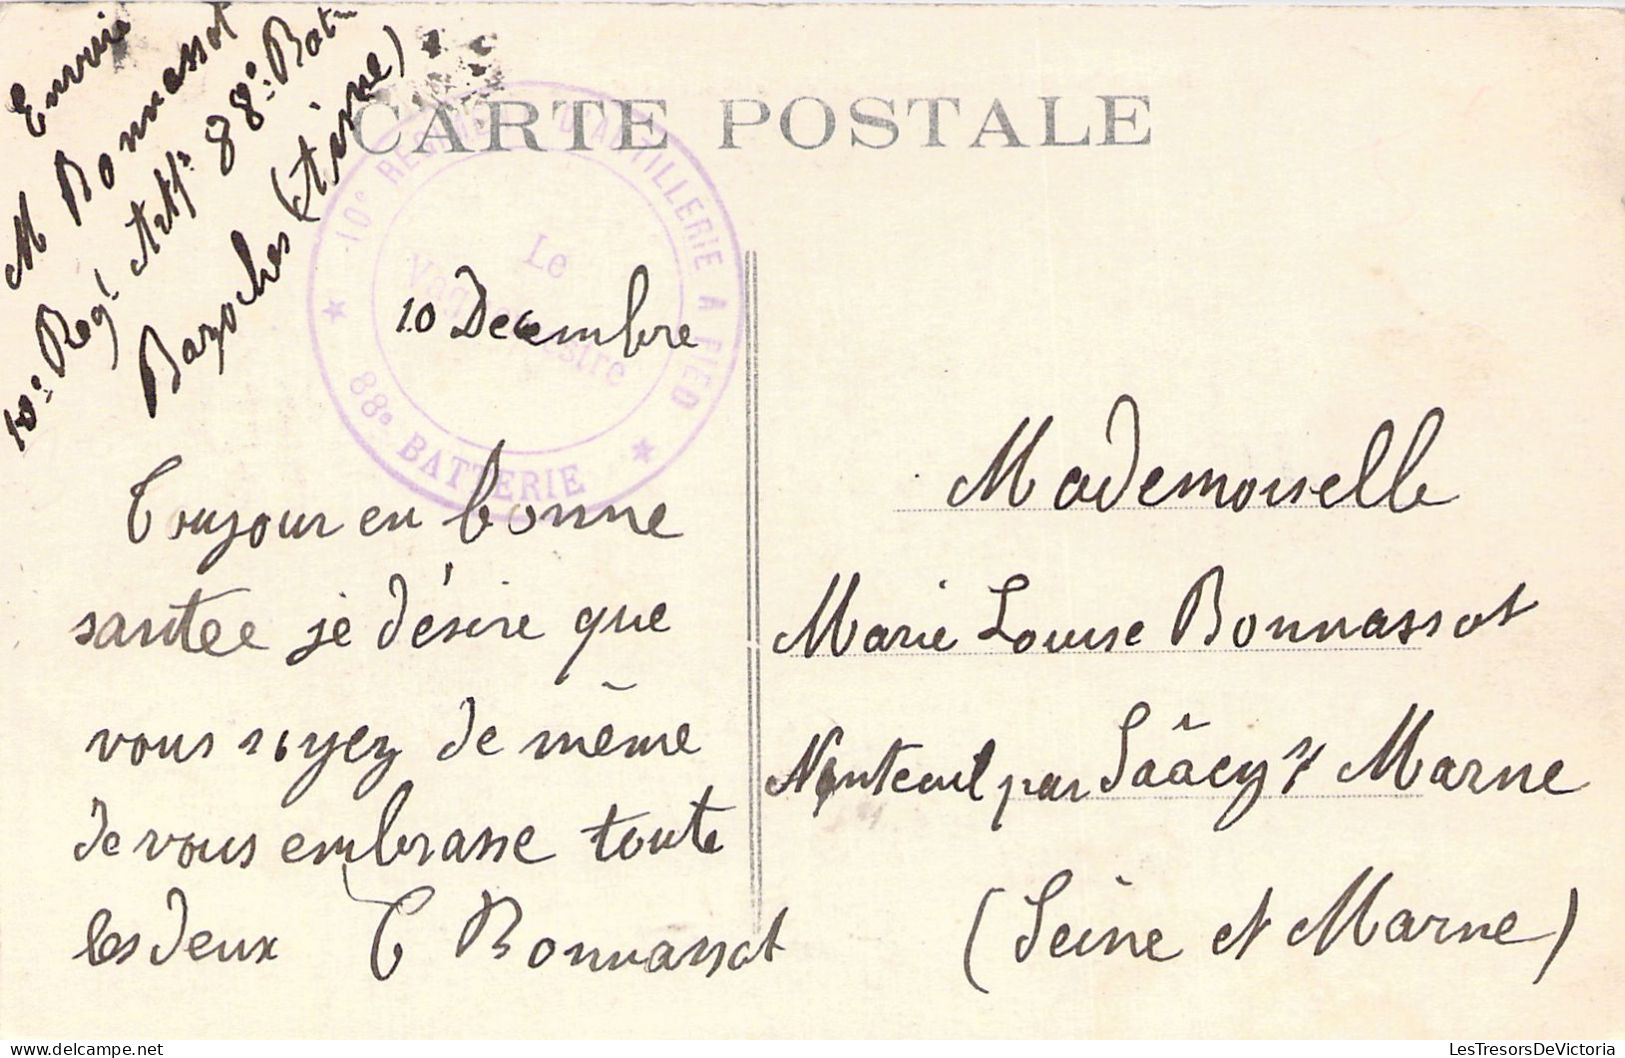 Envoi
M Bonnassot
10e Regt Artie 88e Batie
Bazoches (Aisne)
CARTE POSTALE
10e REGIMENT D'ARTILLERIE A PIED
Le
Vaguemestre
88e BATTERIE
10 Decembre
Toujour en bonne
santee je désire que
vous soyez de même
Je vous embrasse toute
les deux
Bonnassot
Mademoiselle
Marie Louise Bonnassot
Nanteuil par Sâacy s/ Marne
(Seine et Marne)
LesTresorsDeVictoria